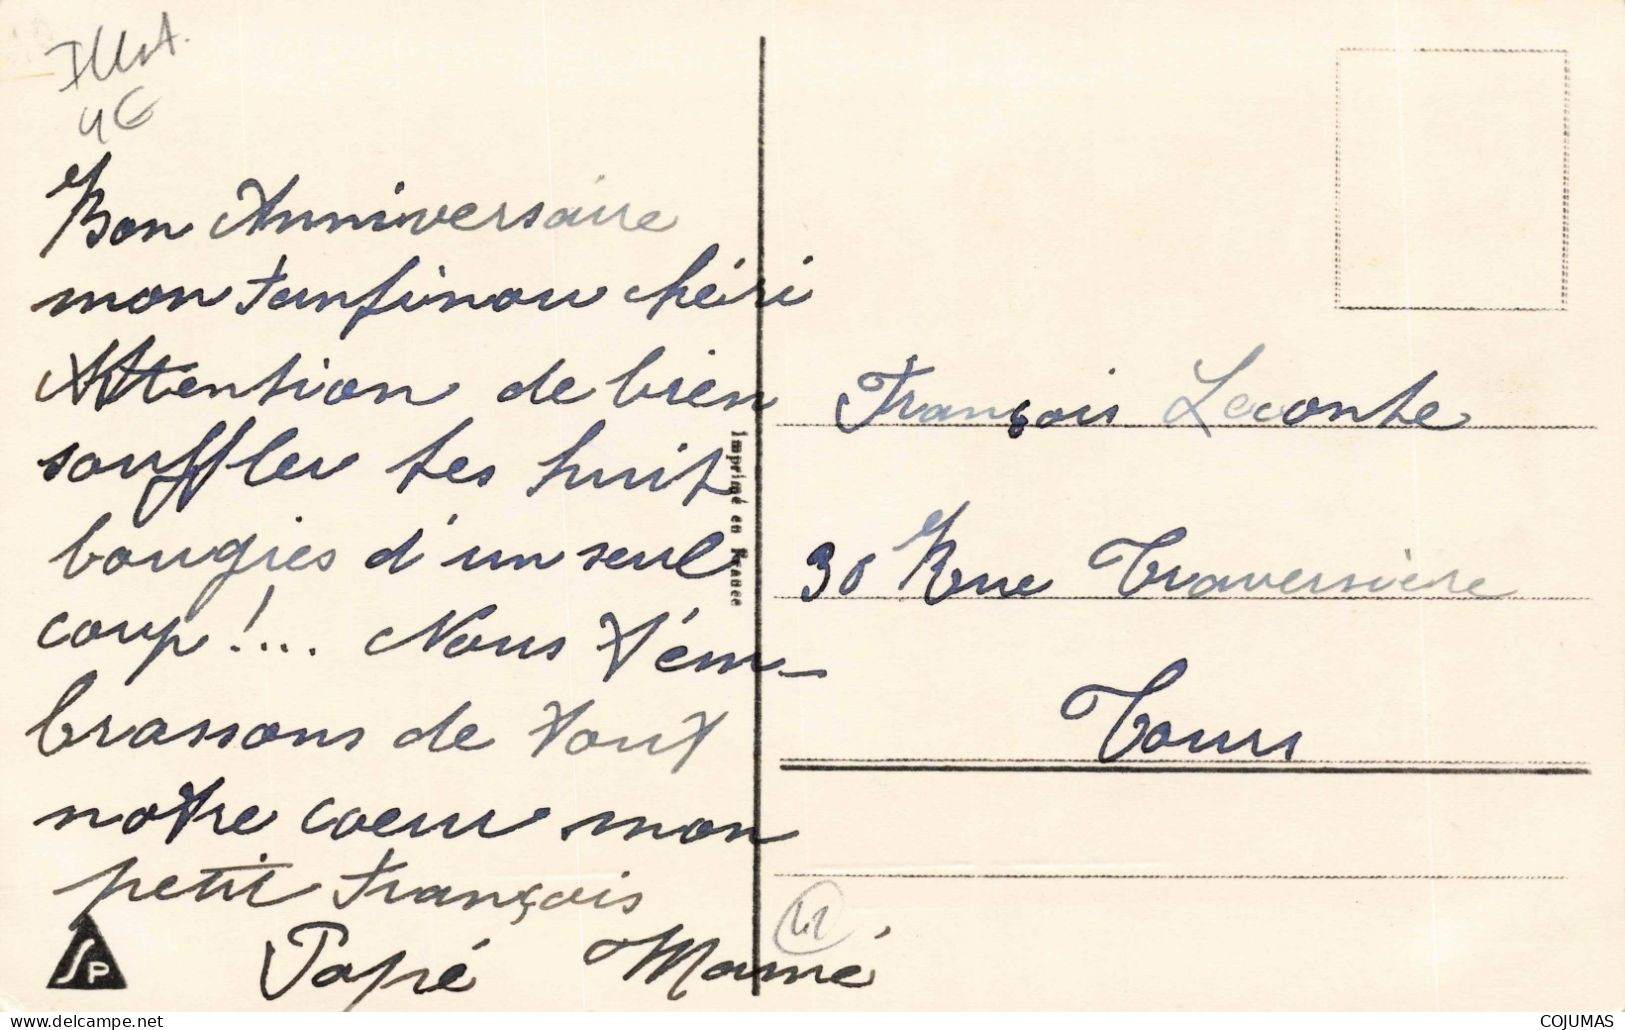 Illust.
4€
Bon Anniversaire
mon fanfinou chéri
Attention de bien
souffler tes huit
bougies d'un seul
coup !... Nous t'em-
brassons de tout
notre coeur mon
petit François
Papé Mamé
Imprimé en France
François Leconte
30 Rue Traversière
Tours
41
SP
https://www.delcampe.net
COJUMAS